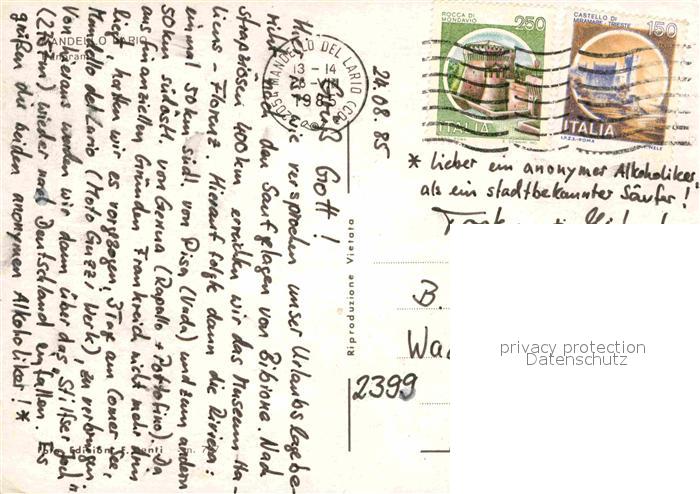 ROCCA DI MONDAVIO
250
ITALIA
CASTELLO DI MIRAMARE - TRIESTE
150
ITALIA
I.P.Z.S. - ROMA
MANDELLO DEL LARIO (CO)
13 - 14
24.08.85
* lieber ein anonymer Alkoholiker,
als ein stadtbekannter Säufer!
Grüß Gott!
Hier, wie versprochen unser Urlaubs
nach den Saufgelagen von Bibione. Nach
strapaziösen 400 km erreichten wir das Museum Ita-
liens - Florenz. Hierauf folgte dann die Riviera:
einmal 50 km südl. von Pisa (Vada) und zum andern
50 km südöstl. von Genua (Rapallo + Portofino). Da
aus finanziellen Gründen Frankreich nicht mehr drin
lag, hatten wir es vorgezogen, 3 Tage am Comer See,
Mandello del Lario (Moto Guzzi Werk), zu verbringen
Von hier aus werden wir dann über das "Stilfser Joch"
wieder nach Deutschland einfallen. Es
grüßen die beiden anonymen Alkoholiker! *
MANDELLO LARIO
Riproduzione Vietata
B.
2399
privacy protection
Datenschutz